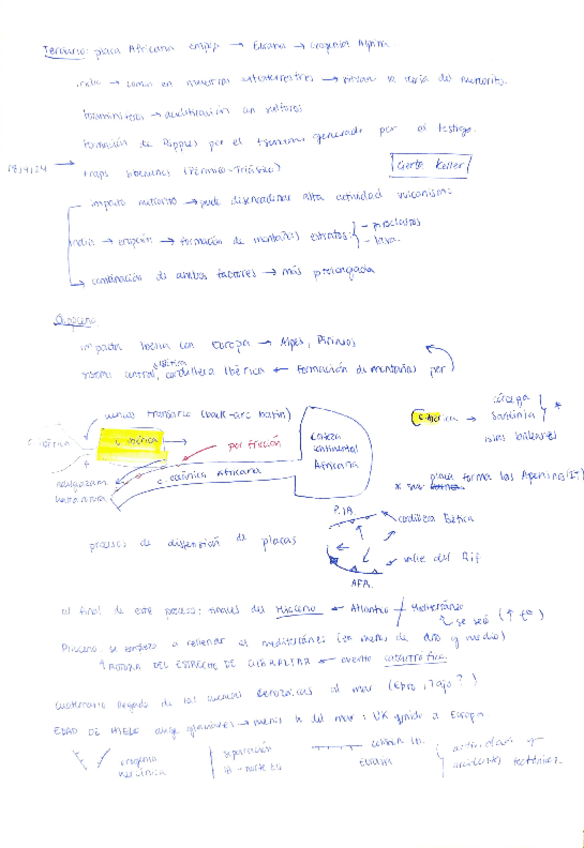 Terciario: placa Africana empuja → Eurasia → orogenia Alpina.
iridio → común en muestras extraterrestres → prueba la teoría del meteorito.
foraminíferos →
formación de Ripples por el tsunami generado por el testigo.
18/4/24 → traps siberianos (Pérmico-Triásico)
Gerta Keller
impacto meteorito → puede desencadenar alta actividad vulcanismo:
India → erupción → formación de montañas estratos: - piroclastos
- lava.
combinación de ambos factores → más prolongada
Oligoceno.
impacta Iberia con Europa → Alpes, Pirineos
sistema central, ibérica cordillera Ibérica ← formación de montañas por
(back-arc basin)
C. ibérica → córcega
Sardinia
islas baleares
*
C. ibérica
C. ibérica
por fricción
corteza continental Africana
c. oceánica africana
* placa forma los Apeninos (IT)
P. IB.
cordillera Bética
procesos de distensión de placas
valle del Rif
AFR.
al final de este proceso: finales del Mioceno → Atlántico / Mediterráneo
↳ se secó (↑ tº)
Plioceno: se empezó a rellenar el mediterráneo (en menos de año y medio)
↑ ROTURA DEL ESTRECHO DE GIBRALTAR ← evento catastrófico.
cuaternario llegada de las cuencas cenozoicas al mar (Ebro, Tajo?)
EDAD DE HIELO auge glaciares → menos h del mar: UK unido a Europa
orogenia hercínica
separación
IB - norte EU
EURASIA
actividad y
accidentes tectónicos.